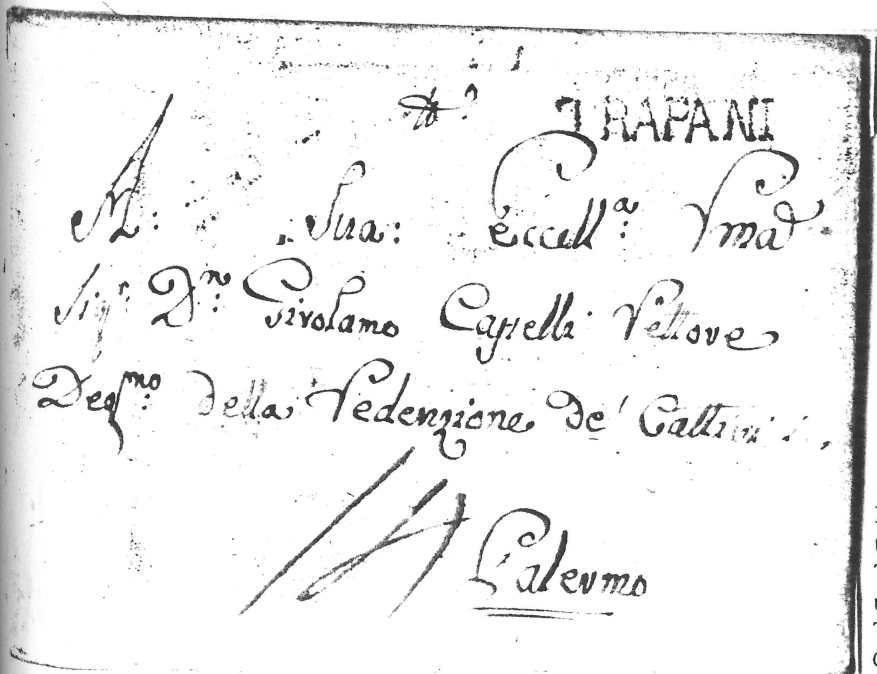 TRAPANI
A: Sua: Eccell.ª
Sig.r D.n Girolamo Capselli Rettore
Deg.mo della Redenzione de' Cattivi
Palermo